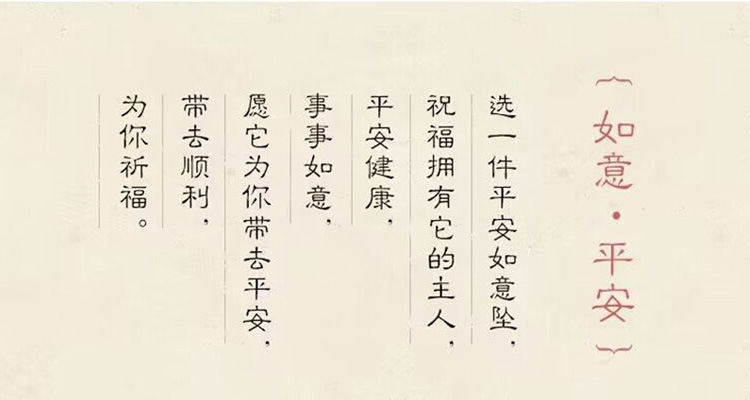 {如意·平安}
选一件平安如意坠，
祝福拥有它的主人，
平安健康，
事事如意，
愿它为你带去平安，
带去顺利，
为你祈福。